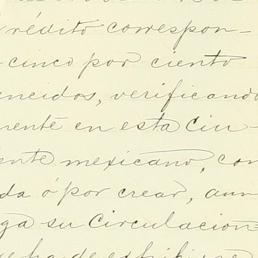 rédito correspon-
cinco por ciento
encidos, verificando
mente en esta Ciu-
ente mexicano, con
da ó por crear, aun
ga su circulacion
ha de exhibirse